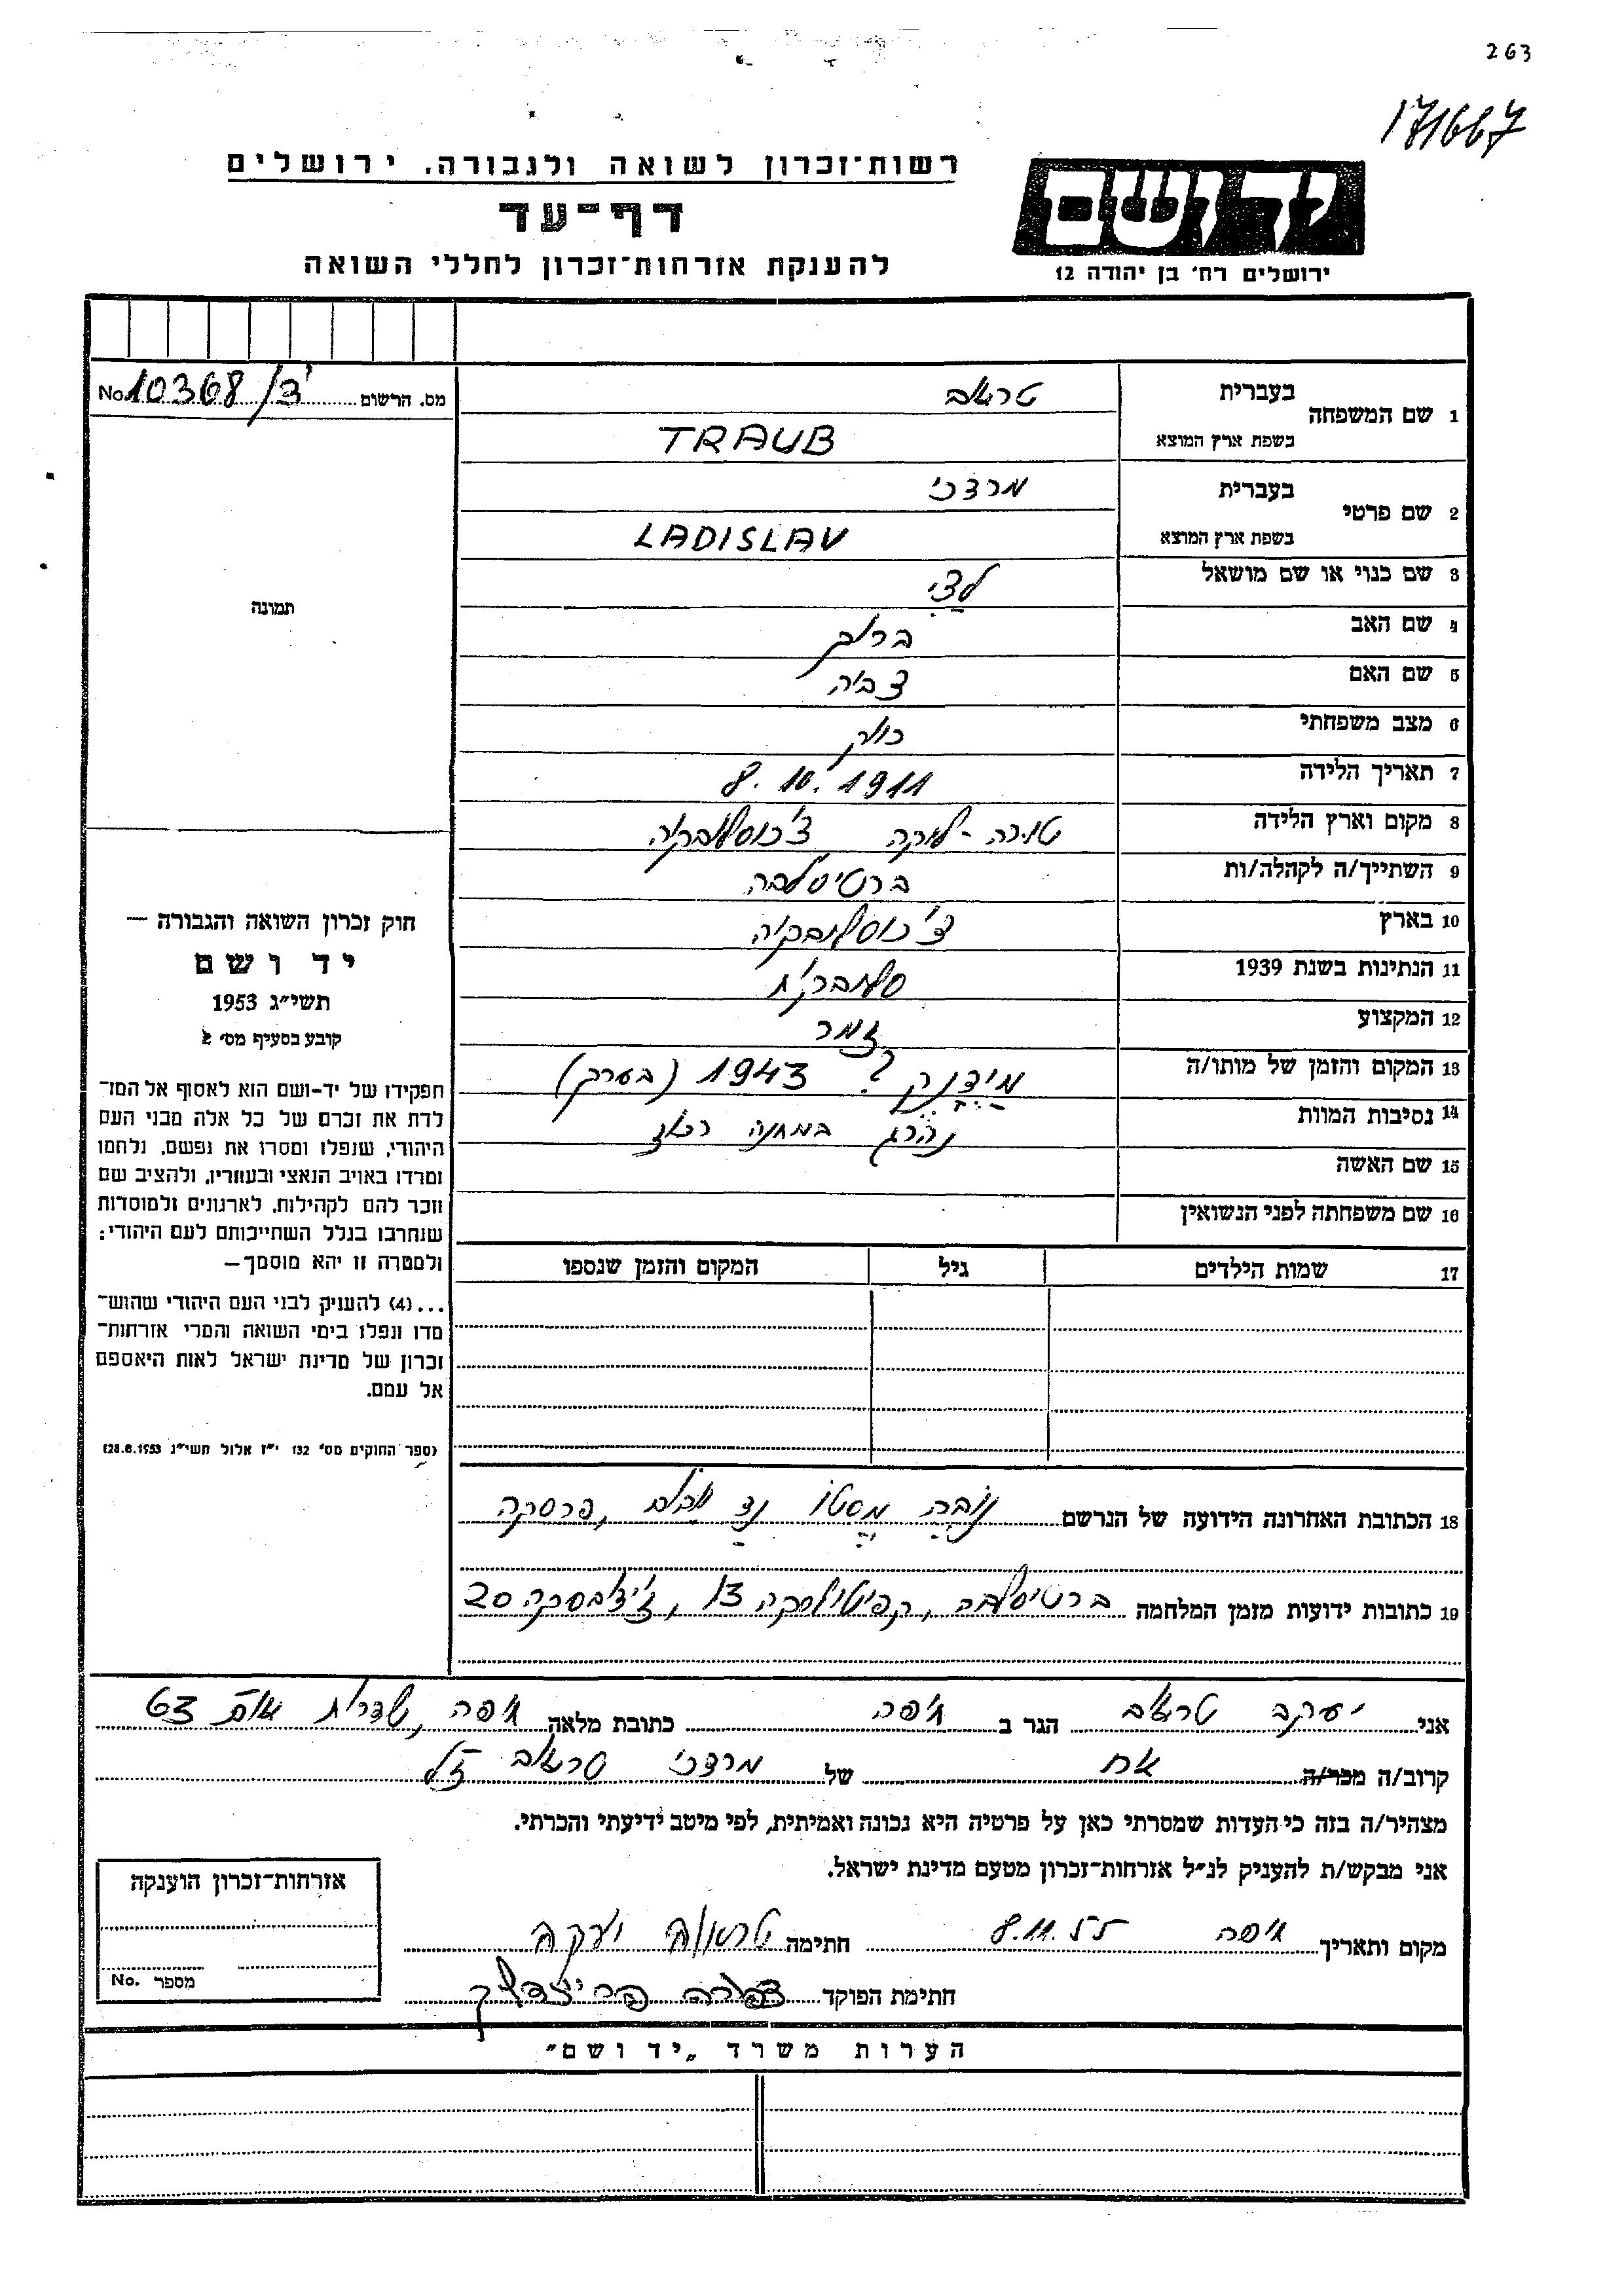 263
171667
רשות־זכרון לשואה ולגבורה, ירושלים
דף־עד
להענקת אזרחות־זכרון לחללי השואה
יד ושם
ירושלים רח' בן יהודה 12
מס. הרשום 10368/צ' No.
1 שם המשפחה בעברית טראוב
בשפת ארץ המוצא TRAUB
2 שם פרטי בעברית מרדכי
בשפת ארץ המוצא LADISLAV
3 שם כנוי או שם מושאל לצי
4 שם האב ברוך
5 שם האם צביה
6 מצב משפחתי רווק
7 תאריך הלידה 8.10.1911
8 מקום וארץ הלידה טורה־לוקה צ'כוסלובקיה
9 השתייך/ה לקהלה/ות ברטיסלבה
10 בארץ צ'כוסלובקיה
11 הנתינות בשנת 1939 סלובקית
12 המקצוע זמר
13 המקום והזמן של מותו/ה מידנק ? 1943 (בערך)
14 נסיבות המוות נהרג במחנה רכוז
15 שם האשה
16 שם משפחתה לפני הנשואין
17 שמות הילדים גיל המקום והזמן שנספו
תמונה
חוק זכרון השואה והגבורה —
יד ושם
תשי״ג 1953
קובע בסעיף מס' 2
תפקידו של יד־ושם הוא לאסוף אל המו־
לדת את זכרם של כל אלה מבני העם
היהודי, שנפלו ומסרו את נפשם, נלחמו
ומרדו באויב הנאצי ובעוזריו, ולהציב שם
וזכר להם לקהילות, לארגונים ולמוסדות
שנחרבו בגלל השתייכותם לעם היהודי;
ולמטרה זו יהא מוסמך —
...(4) להעניק לבני העם היהודי שהוש־
מדו ונפלו בימי השואה והמרי אזרחות־
זכרון של מדינת ישראל לאות היאספם
אל עמם.
(ספר החוקים מס' 132 י״ז אלול תשי״ג 28.8.1953)
18 הכתובת האחרונה הידועה של הנרשם נובה מסטו נד ואהום, פרסקה
19 כתובות ידועות מזמן המלחמה ברטיסלבה, קפיטולסקה 13, 20
אני יעקב טראוב הגר ב חיפה כתובת מלאה חיפה, שדרות או״ם 63
קרוב/ה מכר/ה אח של מרדכי טראוב ז״ל
מצהיר/ה בזה כי העדות שמסרתי כאן על פרטיה היא נכונה ואמיתית, לפי מיטב ידיעתי והכרתי.
אני מבקש/ת להעניק לנ״ל אזרחות־זכרון מטעם מדינת ישראל.
מקום ותאריך חיפה 8.11.55 חתימה טראוב יעקב
חתימת הפוקד
אזרחות־זכרון הוענקה
מספר No.
הערות משרד „יד ושם״